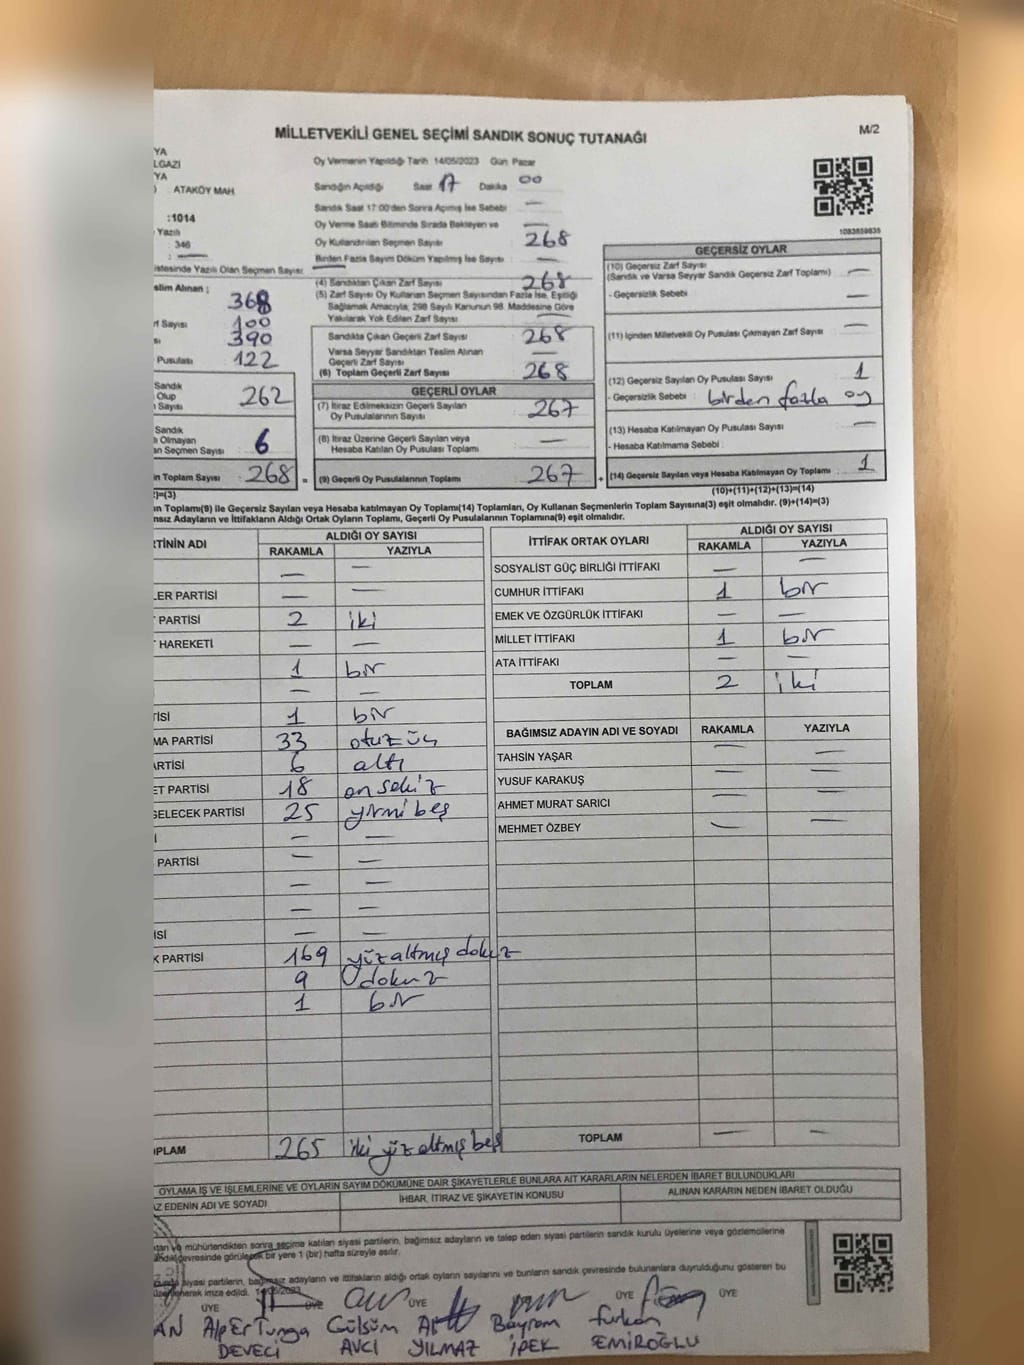 MİLLETVEKİLİ GENEL SEÇİMİ SANDIK SONUÇ TUTANAĞI
M/2
YA
LGAZI
YA
ATAKÖY MAH.
:1014
Yazılı
: 346
istesinde Yazılı Olan Seçmen Sayısı:
Oy Vermenin Yapıldığı Tarih 14/05/2023 Gün Pazar
Sandığın Açıldığı Saat 17 Dakika 00
Sandık Saat 17:00'den Sonra Açılmış İse Sebebi —
Oy Verme Saati Bitiminde Sırada Bekleyen ve —
Oy Kullandırılan Seçmen Sayısı 268
Birden Fazla Sayım Döküm Yapılmış İse Sayısı —
(4) Sandıktan Çıkan Zarf Sayısı 268
(5) Zarf Sayısı Oy Kullanan Seçmen Sayısından Fazla İse, Eşitliği
Sağlamak Amacıyla, 298 Sayılı Kanunun 98. Maddesine Göre
Yakılarak Yok Edilen Zarf Sayısı —
slim Alınan ; 368
rf Sayısı 100
sı 390
Pusulası 122
Sandık
Olup
ı Sayısı 262
Sandık
lı Olmayan
an Seçmen Sayısı 6
in Toplam Sayısı 268 =
2)=(3)
Sandıkta Çıkan Geçerli Zarf Sayısı 268
Varsa Seyyar Sandıktan Teslim Alınan
Geçerli Zarf Sayısı —
(6) Toplam Geçerli Zarf Sayısı 268
GEÇERLİ OYLAR
(7) İtiraz Edilmeksizin Geçerli Sayılan
Oy Pusulalarının Sayısı 267
(8) İtiraz Üzerine Geçerli Sayılan veya
Hesaba Katılan Oy Pusulası Toplamı —
(9) Geçerli Oy Pusulalarının Toplamı 267 +
1083859835
GEÇERSİZ OYLAR
(10) Geçersiz Zarf Sayısı
(Sandık ve Varsa Seyyar Sandık Geçersiz Zarf Toplamı) —
- Geçersizlik Sebebi —
(11) İçinden Milletvekili Oy Pusulası Çıkmayan Zarf Sayısı —
(12) Geçersiz Sayılan Oy Pusulası Sayısı 1
- Geçersizlik Sebebi : birden fazla oy
(13) Hesaba Katılmayan Oy Pusulası Sayısı —
- Hesaba Katılmama Sebebi :
(14) Geçersiz Sayılan veya Hesaba Katılmayan Oy Toplamı 1
(10)+(11)+(12)+(13)=(14)
ın Toplamı(9) ile Geçersiz Sayılan veya Hesaba katılmayan Oy Toplamı(14) Toplamları, Oy Kullanan Seçmenlerin Toplam Sayısına(3) eşit olmalıdır. (9)+(14)=(3)
msız Adayların ve İttifakların Aldığı Ortak Oyların Toplamı, Geçerli Oy Pusulalarının Toplamına(9) eşit olmalıdır.
RTİNİN ADI ALDIĞI OY SAYISI
RAKAMLA YAZIYLA
— —
LER PARTİSİ — —
PARTİSİ 2 iki
HAREKETİ — —
1 bir
— —
TİSİ 1 bir
MA PARTİSİ 33 otuz üç
ARTİSİ 6 altı
ET PARTİSİ 18 on sekiz
GELECEK PARTİSİ 25 yirmi beş
İ — —
PARTİSİ — —
— —
— —
İSİ — —
K PARTİSİ 169 yüz altmış dokuz
9 dokuz
1 bir
OPLAM 265 iki yüz altmış beş
İTTİFAK ORTAK OYLARI ALDIĞI OY SAYISI
RAKAMLA YAZIYLA
SOSYALİST GÜÇ BİRLİĞİ İTTİFAKI — —
CUMHUR İTTİFAKI 1 bir
EMEK VE ÖZGÜRLÜK İTTİFAKI — —
MİLLET İTTİFAKI 1 bir
ATA İTTİFAKI — —
TOPLAM 2 iki
BAĞIMSIZ ADAYIN ADI VE SOYADI RAKAMLA YAZIYLA
TAHSİN YAŞAR — —
YUSUF KARAKUŞ — —
AHMET MURAT SARICI — —
MEHMET ÖZBEY — —
TOPLAM — —
OYLAMA İŞ VE İŞLEMLERİNE VE OYLARIN SAYIM DÖKÜMÜNE DAİR ŞİKAYETLERLE BUNLARA AİT KARARLARIN NELERDEN İBARET BULUNDUKLARI
AZ EDENİN ADI VE SOYADI İHBAR, İTİRAZ VE ŞİKAYETİN KONUSU ALINAN KARARIN NEDEN İBARET OLDUĞU
ve mühürlendikten sonra seçime katılan siyasi partilerin, bağımsız adayların ve talep edan siyasi partilerin sandık kurulu üyelerine veya gözlemcilerine
çevresinde görülecek bir yere 1 (bir) hafta süreyle asılır.
siyasi partilerin, bağımsız adayların ve ittifakların aldığı ortak oyların sayılarını ve bunların sandık çevresinde bulunanlara duyrulduğunu gösteren bu
imza edildi.
ÜYE ÜYE ÜYE ÜYE ÜYE
AN Alp Er Tunga Gülsüm Bayram furkan
DEVECİ AVCI YILMAZ İPEK EMİROĞLU